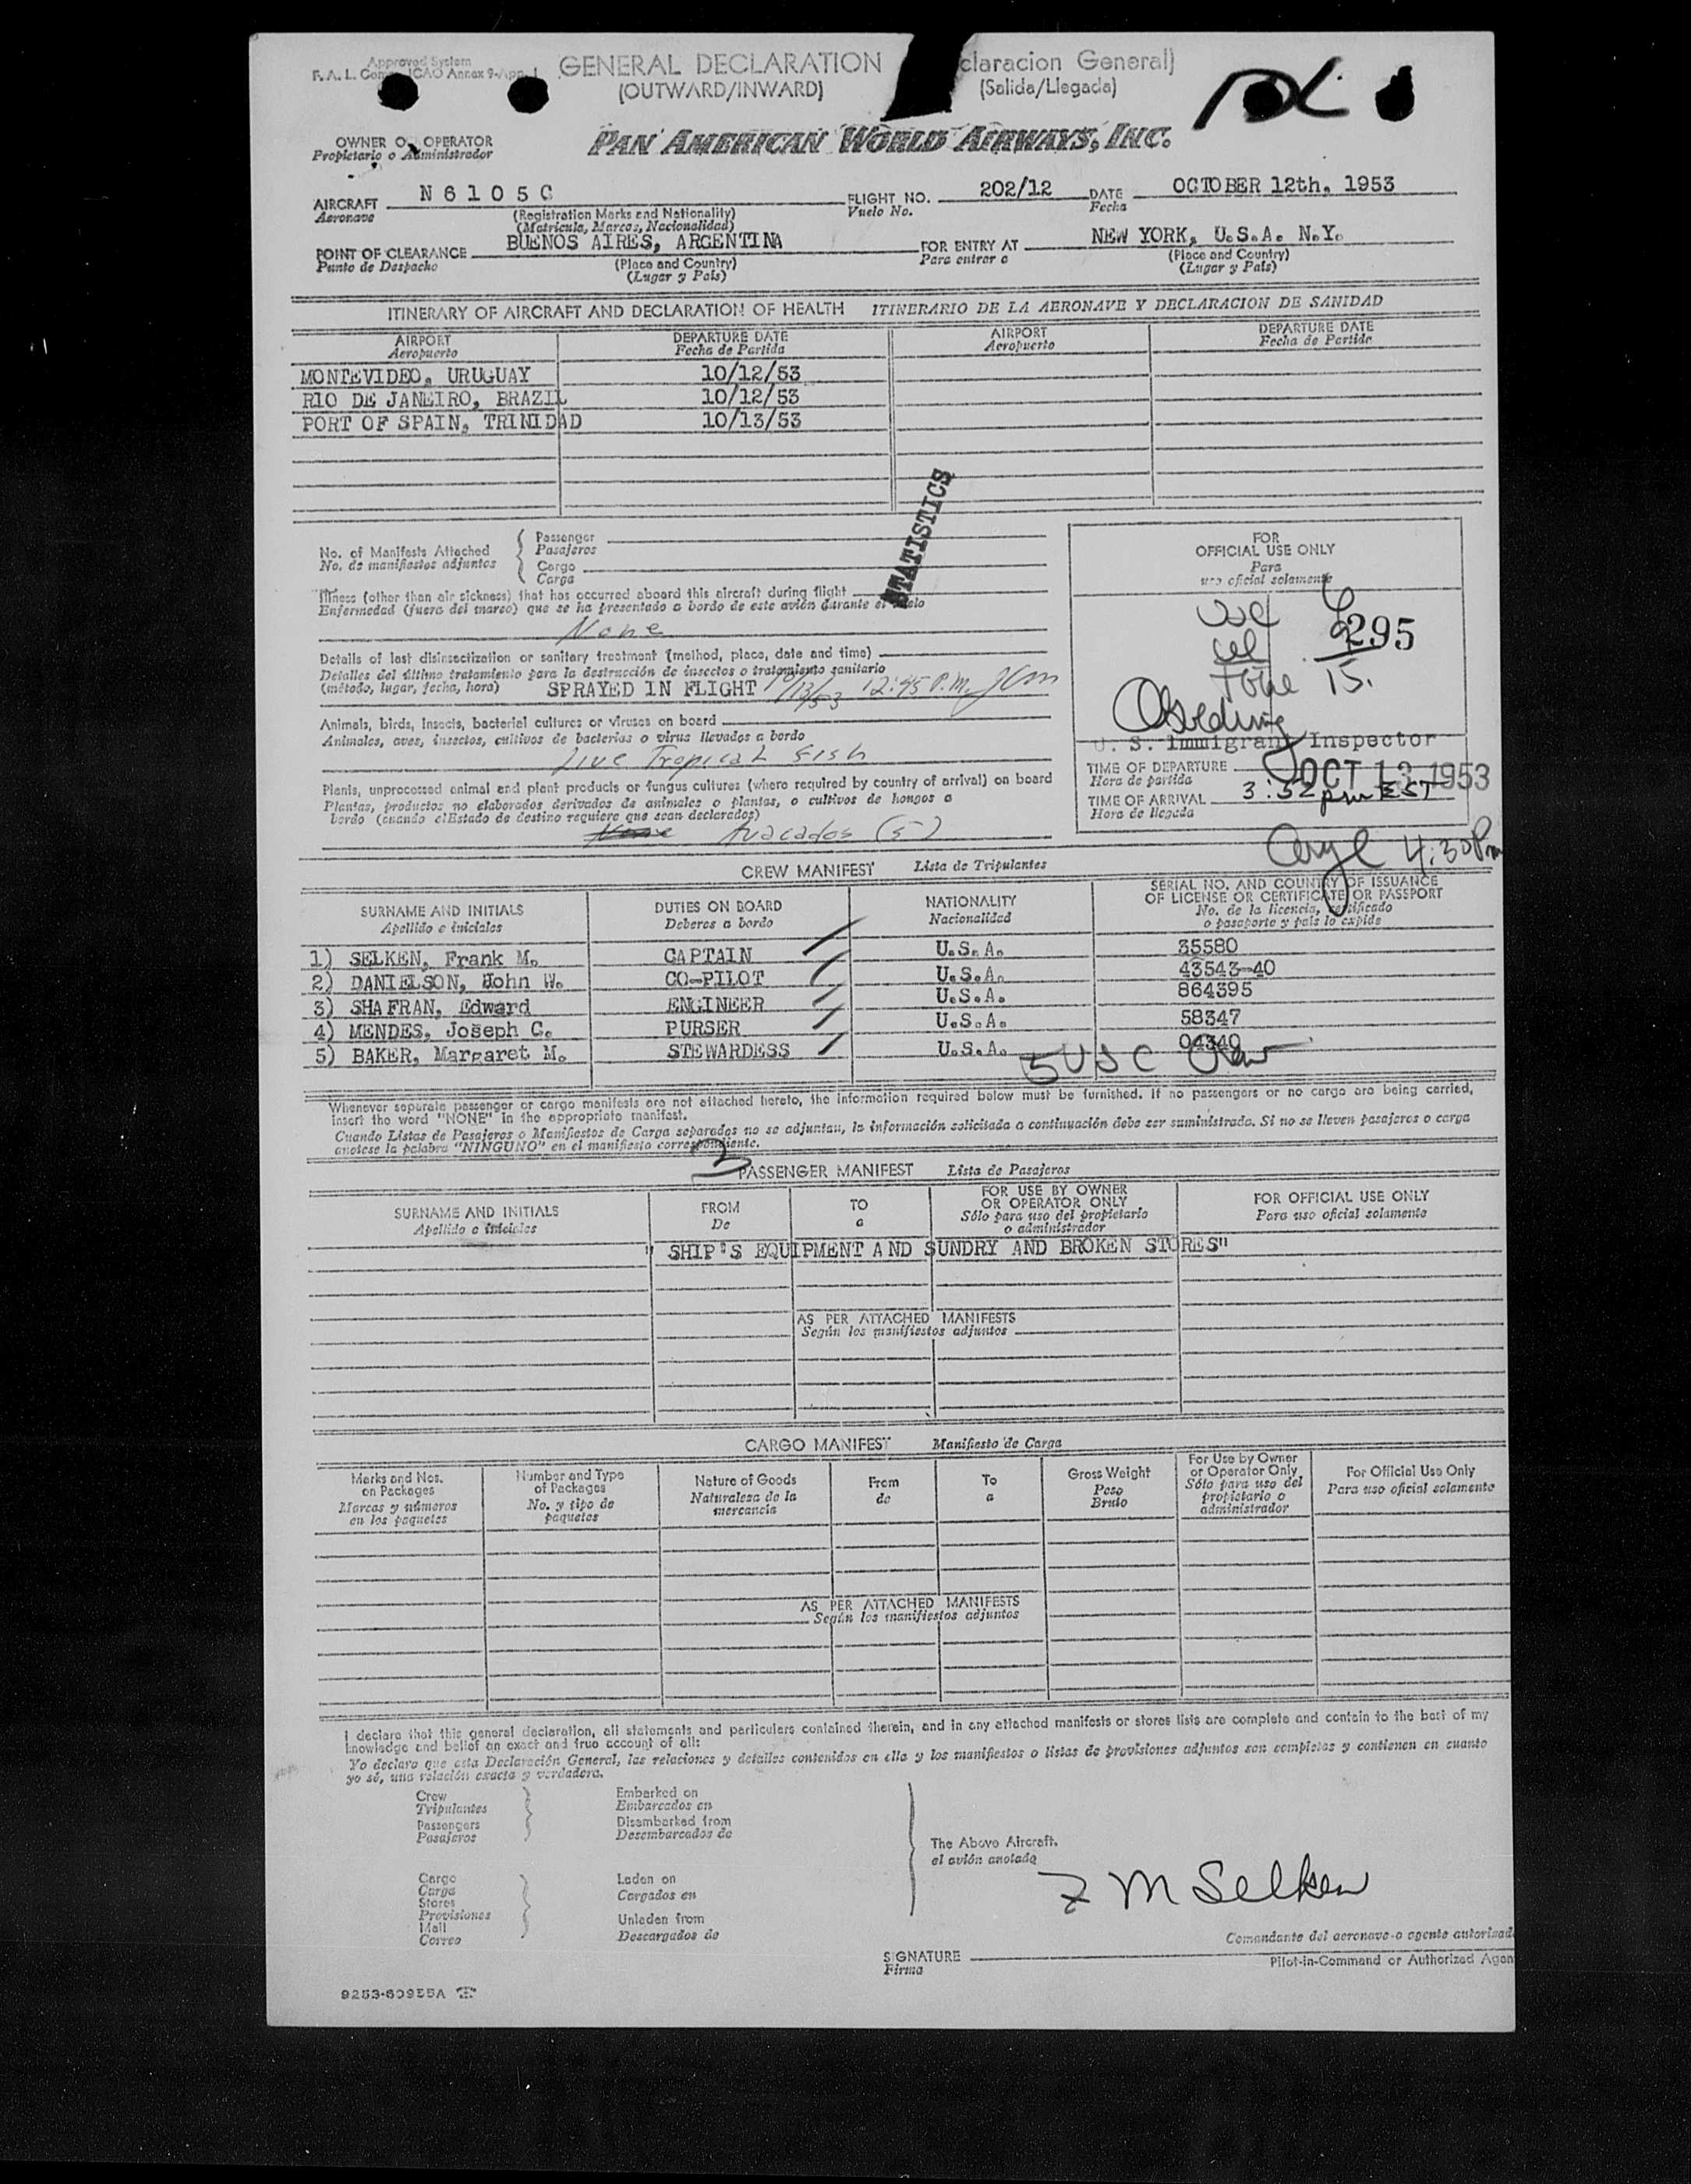 Approved System
F. A. L. Com. ICAO Annex 9-App. 1
GENERAL DECLARATION
claracion General)
(OUTWARD/INWARD)
(Salida/Llegada)
OWNER O OPERATOR
Propietario o Administrador
PAN AMERICAN WORLD AIRWAYS, INC.
AIRCRAFT N 6 1 0 5 C FLIGHT NO. 202/12 DATE OCTOBER 12th, 1953
Aeronave (Registration Marks and Nationality) Vuelo No. Fecha
(Matrícula, Marcas, Nacionalidad)
POINT OF CLEARANCE BUENOS AIRES, ARGENTINA FOR ENTRY AT NEW YORK, U.S.A. N.Y.
Punto de Despacho (Place and Country) Para entrar a (Place and Country)
(Lugar y País) (Lugar y País)
ITINERARY OF AIRCRAFT AND DECLARATION OF HEALTH ITINERARIO DE LA AERONAVE Y DECLARACION DE SANIDAD
AIRPORT DEPARTURE DATE AIRPORT DEPARTURE DATE
Aeropuerto Fecha de Partida Aeropuerto Fecha de Partida
MONTEVIDEO, URUGUAY 10/12/53
RIO DE JANEIRO, BRAZIL 10/12/53
PORT OF SPAIN, TRINIDAD 10/13/53
STATISTICS
No. of Manifests Attached
No. de manifiestos adjuntos
Passenger
Pasajeros
Cargo
Carga
Illness (other than air sickness) that has occurred aboard this aircraft during flight
Enfermedad (fuera del mareo) que se ha presentado a bordo de este avión durante el vuelo
None
Details of last disinsectization or sanitary treatment (method, place, date and time)
Detalles del último tratamiento para la destrucción de insectos o tratamiento sanitario
(método, lugar, fecha, hora) SPRAYED IN FLIGHT 10/13/53 12:45 P.M.
Animals, birds, insects, bacterial cultures or viruses on board
Animales, aves, insectos, cultivos de bacterias o virus llevados a bordo
Live Tropical Fish
Plants, unprocessed animal and plant products or fungus cultures (where required by country of arrival) on board
Plantas, productos no elaborados derivados de animales o plantas, o cultivos de hongos a
bordo (cuando el Estado de destino requiere que sean declarados)
None Avacados (5)
FOR
OFFICIAL USE ONLY
Para
uso oficial solamente
USC 6
295
15.
U. S. Immigrant Inspector
TIME OF DEPARTURE OCT 13 1953
Hora de partida
TIME OF ARRIVAL 3:52 pm EST
Hora de llegada
4:30 Pm
CREW MANIFEST Lista de Tripulantes
SURNAME AND INITIALS DUTIES ON BOARD NATIONALITY SERIAL NO. AND COUNTRY OF ISSUANCE
OF LICENSE OR CERTIFICATE OR PASSPORT
Apellido e iniciales Deberes a bordo Nacionalidad No. de la licencia, certificado
o pasaporte y país lo expide
1) SELKEN, Frank M. CAPTAIN U.S.A. 35580
2) DANIELSON, John W. CO-PILOT U.S.A. 43543-40
3) SHAFRAN, Edward ENGINEER U.S.A. 864395
4) MENDES, Joseph C. PURSER U.S.A. 58347
5) BAKER, Margaret M. STEWARDESS U.S.A. 04340
5 USC Crew
Whenever separate passenger or cargo manifests are not attached hereto, the information required below must be furnished. If no passengers or no cargo are being carried,
insert the word "NONE" in the appropriate manifest.
Cuando Listas de Pasajeros o Manifiestos de Carga separados no se adjuntan, la información solicitada a continuación debe ser suministrada. Si no se lleven pasajeros o carga
anótese la palabra "NINGUNO" en el manifiesto correspondiente.
PASSENGER MANIFEST Lista de Pasajeros
SURNAME AND INITIALS FROM TO FOR USE BY OWNER FOR OFFICIAL USE ONLY
OR OPERATOR ONLY
Apellido e iniciales De a Sólo para uso del propietario Para uso oficial solamente
o administrador
" SHIP'S EQUIPMENT AND SUNDRY AND BROKEN STORES"
AS PER ATTACHED MANIFESTS
Según los manifiestos adjuntos
CARGO MANIFEST Manifiesto de Carga
Marks and Nos. on Packages Number and Type of Packages Nature of Goods From To Gross Weight For Use by Owner or Operator Only For Official Use Only
Marcas y números en los paquetes No. y tipo de paquetes Naturaleza de la mercancía de a Peso Bruto Sólo para uso del propietario o administrador Para uso oficial solamente
AS PER ATTACHED MANIFESTS
Según los manifiestos adjuntos
I declare that this general declaration, all statements and particulars contained therein, and in any attached manifests or stores lists are complete and contain to the best of my
knowledge and belief an exact and true account of all:
Yo declaro que esta Declaración General, las relaciones y detalles contenidos en ella y los manifiestos o listas de provisiones adjuntos son completos y contienen en cuanto
yo sé, una relación exacta y verdadera.
Crew Embarked on
Tripulantes Embarcados en
Passengers Disembarked from
Pasajeros Desembarcados de
The Above Aircraft.
el avión anotado
Cargo Laden on
Carga Cargados en
Stores
Provisiones
Mail Unladen from
Correo Descargados de
F M Selken
Comandante del aeronave o agente autorizad
SIGNATURE
Firma
Pilot-in-Command or Authorized Agen
9253-60955A